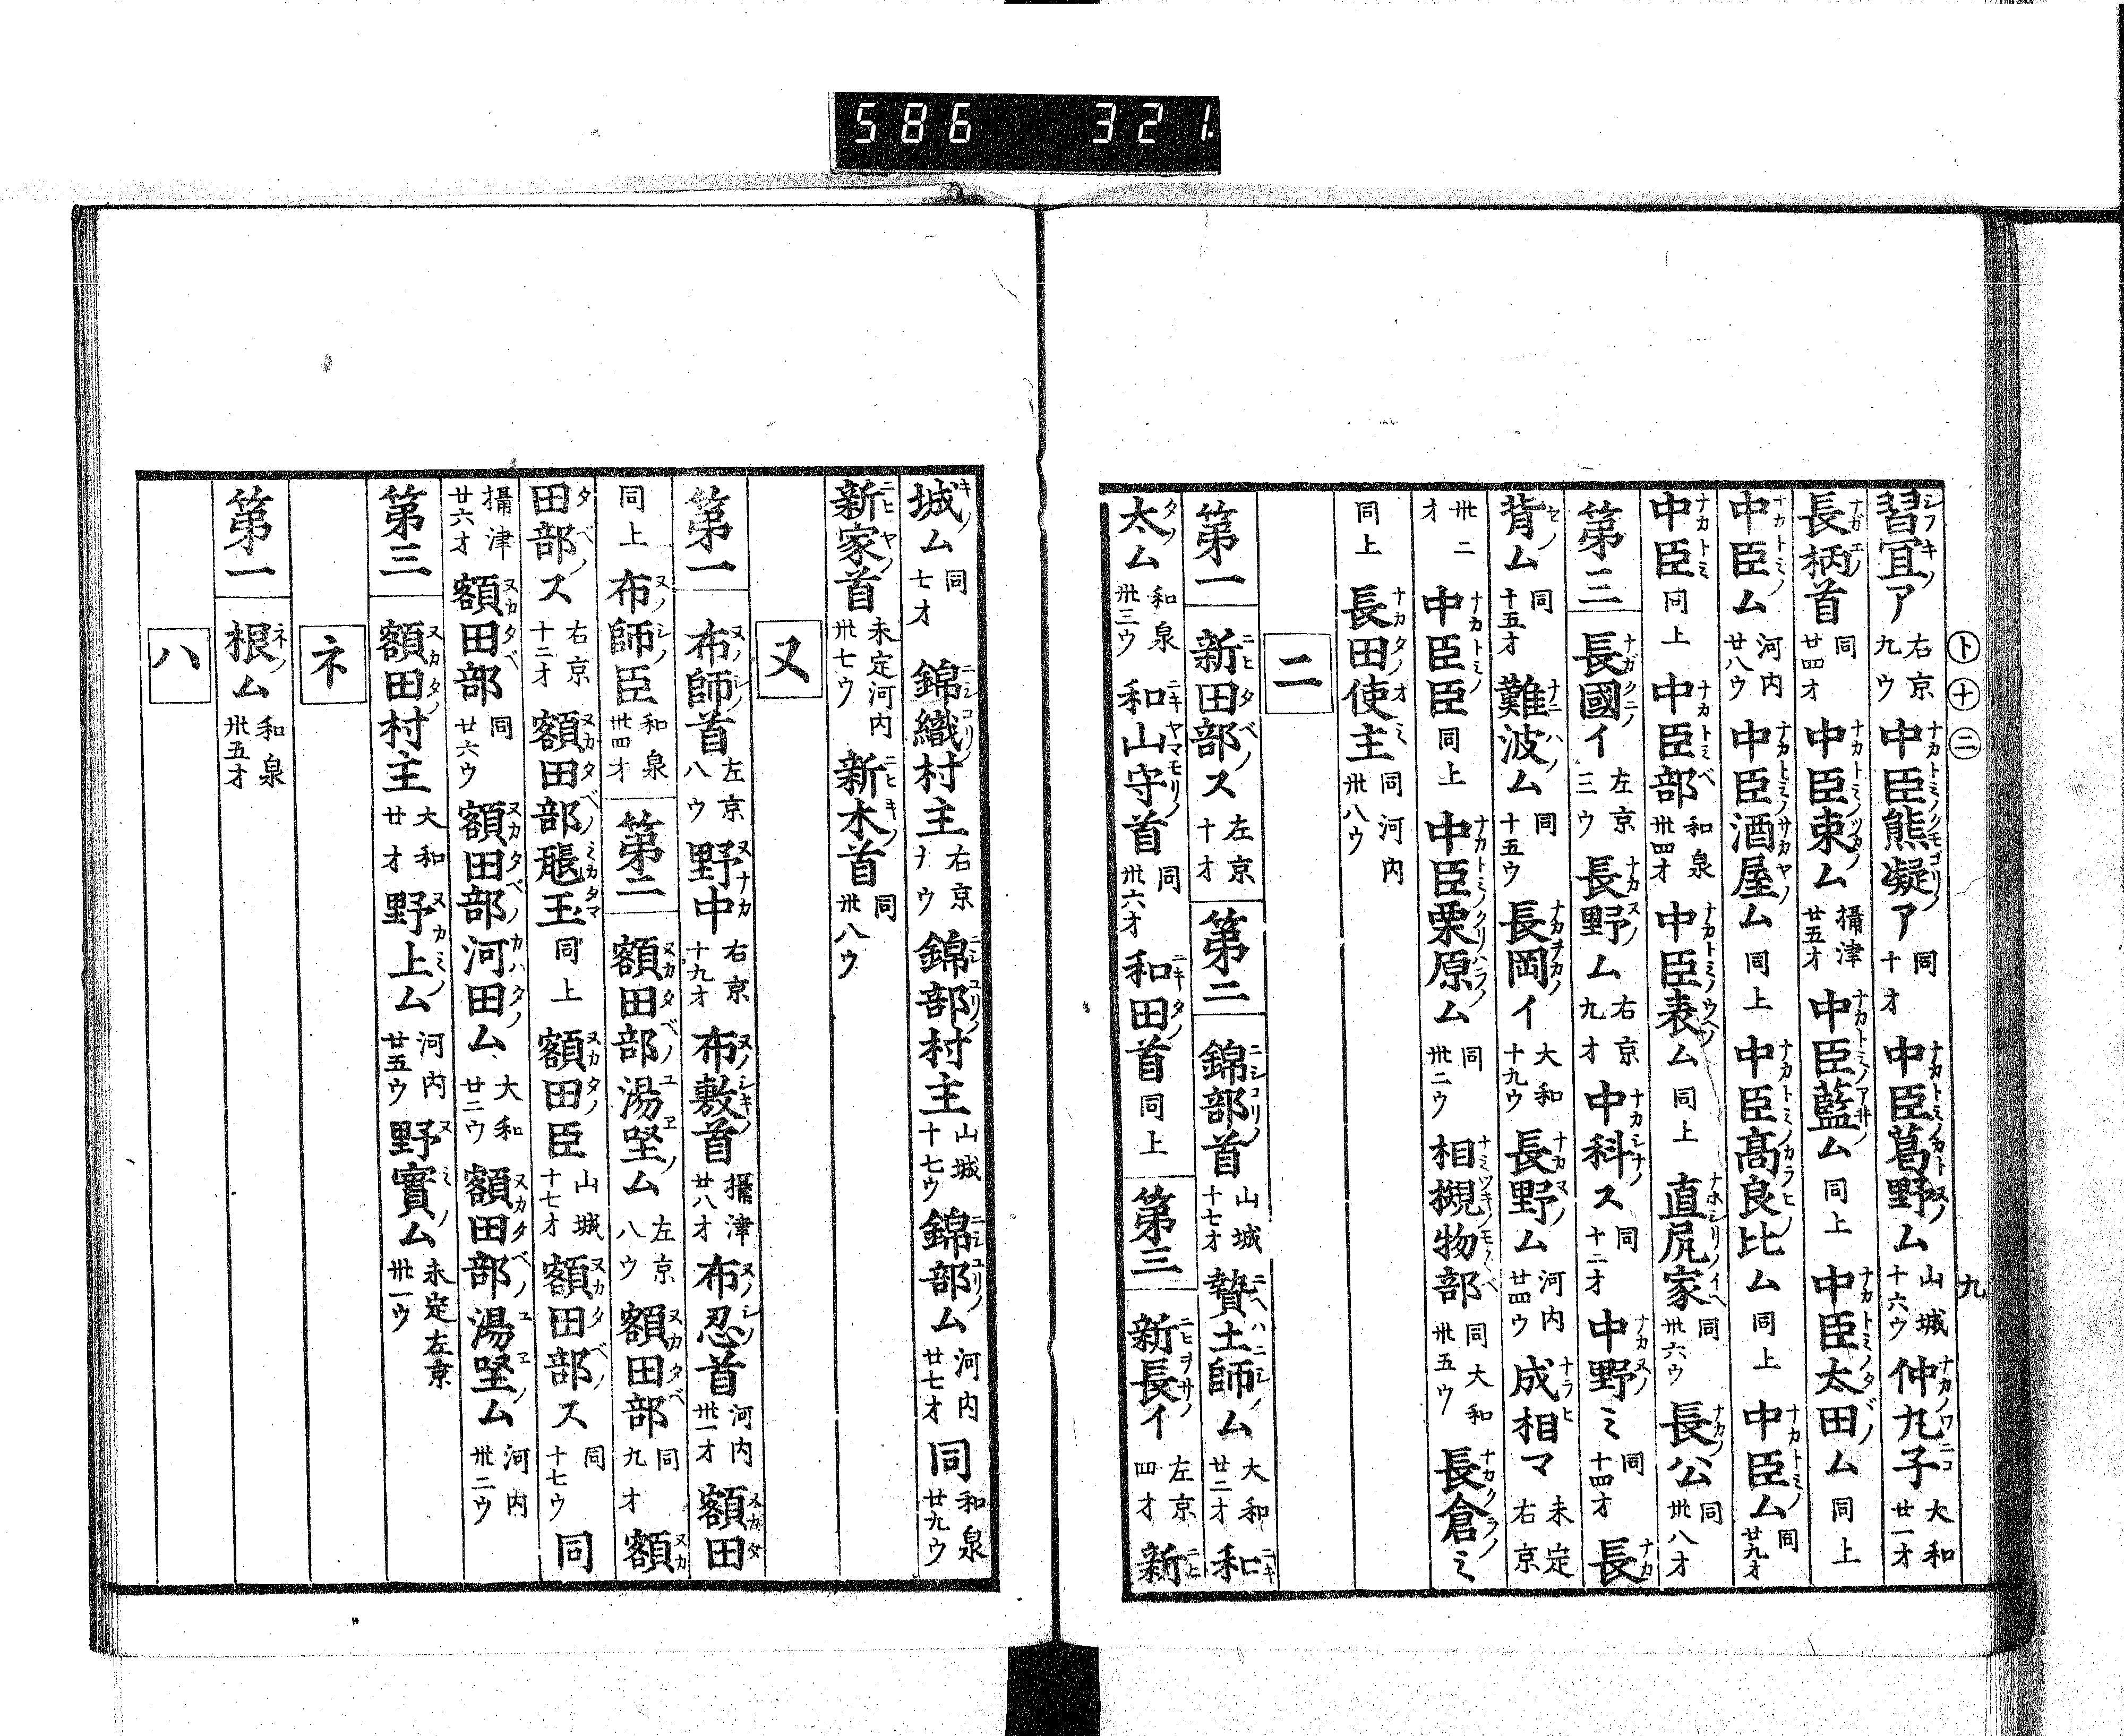 586 321
㋣㊉㊁
九
習宜ア 右京九ウ 中臣熊凝ア 同十オ 中臣葛野ム 山城十六ウ 仲丸子 大和廿一オ
長柄首 同廿四オ 中臣束ム 攝津廿五オ 中臣藍ム 同上 中臣太田ム 同上
中臣ム 河内廿八ウ 中臣酒屋ム 同上 中臣髙良比ム 同上 中臣ム 同廿九オ
中臣 同上 中臣部 和泉卅四オ 中臣表ム 同上 直尻家 同卅六ウ 長公 同卅八オ
第三 長國イ 左京三ウ 長野ム 右京九オ 中科ス 同十二オ 中野ミ 同十四オ 長
背ム 同十五オ 難波ム 同十五ウ 長岡イ 大和十九ウ 長野ム 河内廿四ウ 成相マ 未定右京
卅二オ 中臣臣 同上 中臣栗原ム 同卅二ウ 相槻物部 同大和卅五ウ 長倉ミ
同上 長田使主 同河内卅八ウ
ニ
第一 新田部ス 左京十オ 第二 錦部首 山城十七オ 贄土師ム 大和廿二オ 和
太ム 和泉卅三ウ 和山守首 同卅六オ 和田首 同上 第三 新長イ 左京四オ 新
城ム 同七オ 錦織村主 右京ナウ 錦部村主 山城十七ウ 錦部ム 河内廿七オ 同 和泉廿九ウ
新家首 未定河内卅七ウ 新木首 同卅八ウ
ヌ
第一 布師首 左京八ウ 野中 右京十九オ 布敷首 攝津廿八オ 布忍首 河内卅一オ 額田
同上 布師臣 和泉卅四オ 第二 額田部湯坐ム 左京八ウ 額田部 同九オ 額
田部ス 右京十二オ 額田部𤭖玉 同上 額田臣 山城十七オ 額田部ス 同十七ウ 同
攝津廿六オ 額田部 同廿六ウ 額田部河田ム 大和廿二ウ 額田部湯坐ム 河内卅二ウ
第三 額田村主 大和廿オ 野上ム 河内廿五ウ 野實ム 未定左京卅一ウ
ネ
第一 根ム 和泉卅五オ
ハ